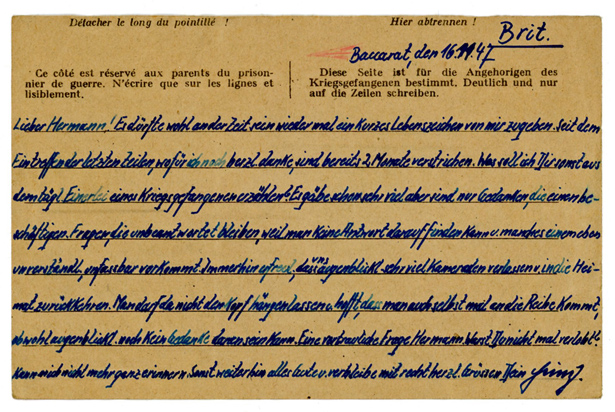 Détacher le long du pointillé !
Hier abtrennen !
Brit.
Baccarat, den 16.11.47
Ce côté est réservé aux parents du prison-
nier de guerre. N'écrire que sur les lignes et
lisiblement.
Diese Seite ist für die Angehorigen des
Kriegsgefangenen bestimmt. Deutlich und nur
auf die Zeilen schreiben.
Lieber Hermann! Es dürfte wohl an der Zeit sein wieder mal ein kurzes Lebenszeichen von mir zu geben. Seit dem
Eintreffen der letzten Zeilen, wofür ich noch herzl. danke, sind bereits 2 Monate verstrichen. Was soll ich Dir sonst aus
dem tägl. Einerlei eines Kriegsgefangenen erzählen? Es gäbe schon sehr viel aber sind nur Gedanken, die einen be-
schäftigen. Fragen, die unbeantwortet bleiben, weil man keine Antwort darauf finden kann u. manches einem eben
unverständl., unfassbar vorkommt. Immerhin erfreul., dass augenblickl. sehr viel Kameraden verlassen u. in die Hei-
mat zurückkehren. Man darf da nicht den Kopf hängen lassen u. hofft, dass man auch selbst mal an die Reihe kommt,
obwohl augenblickl. noch kein Gedanke daran sein kann. Eine vertrauliche Frage Hermann. Warst Du nicht mal verlobt?
Kann mich nicht mehr ganz erinnern. Sonst weiterhin alles Gute u. verbleibe mit recht herzl. Grüssen Dein